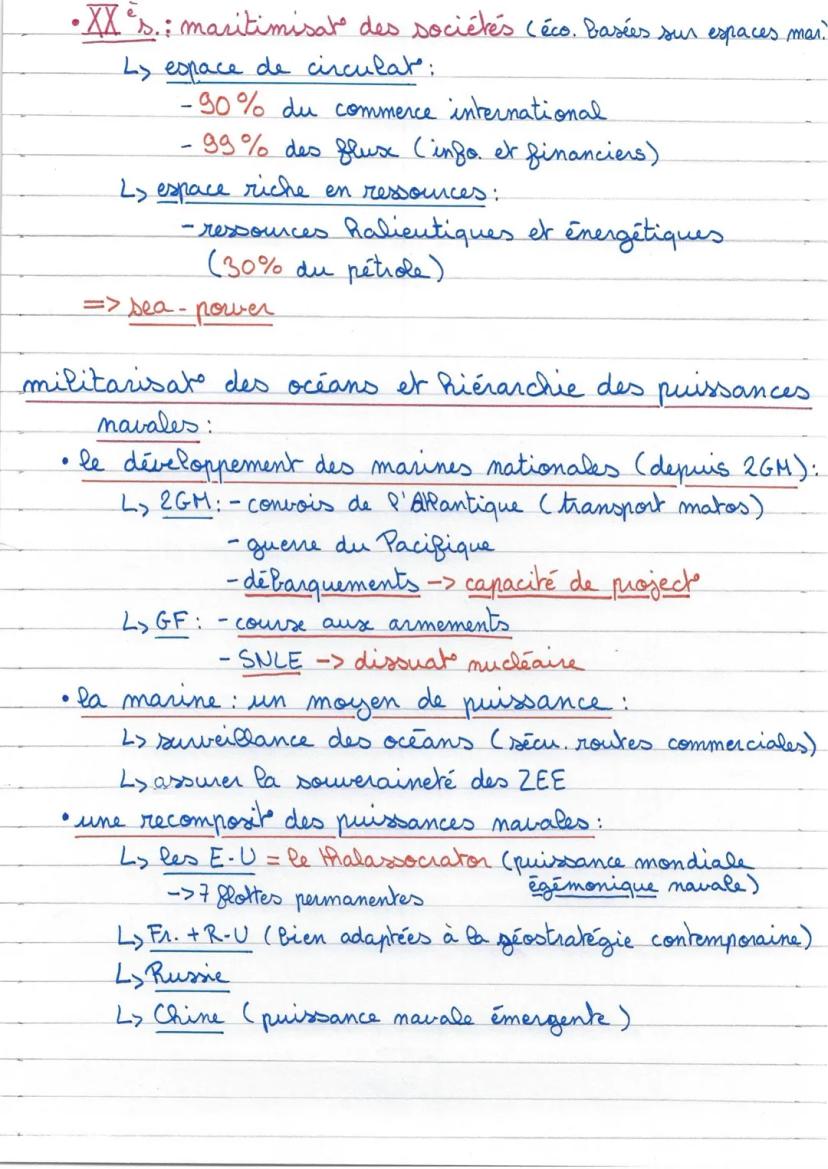 • XXès. : maritimisat° des sociétés (éco. basées sur espaces mar.
↳ espace de circulat° :
- 90% du commerce international
- 99% des flux (info. et financiers)
↳ espace riche en ressources :
- ressources halieutiques et énergétiques
(30% du pétrole)
=> sea-power
militarisat° des océans et hiérarchie des puissances
navales :
• le développement des marines nationales (depuis 2GM) :
↳ 2GM : - convois de l'Atlantique (transport matos)
- guerre du Pacifique
- débarquements -> capacité de project°
↳ GF : - course aux armements
- SNLE -> dissuat° nucléaire
• la marine : un moyen de puissance :
↳ surveillance des océans (sécu. routes commerciales)
↳ assurer la souveraineté des ZEE
• une recomposit° des puissances navales :
↳ les E-U = le thalassocrator (puissance mondiale
égémonique navale)
-> 7 flottes permanentes
↳ Fr. + R-U (bien adaptées à la géostratégie contemporaine)
↳ Russie
↳ Chine (puissance navale émergente)